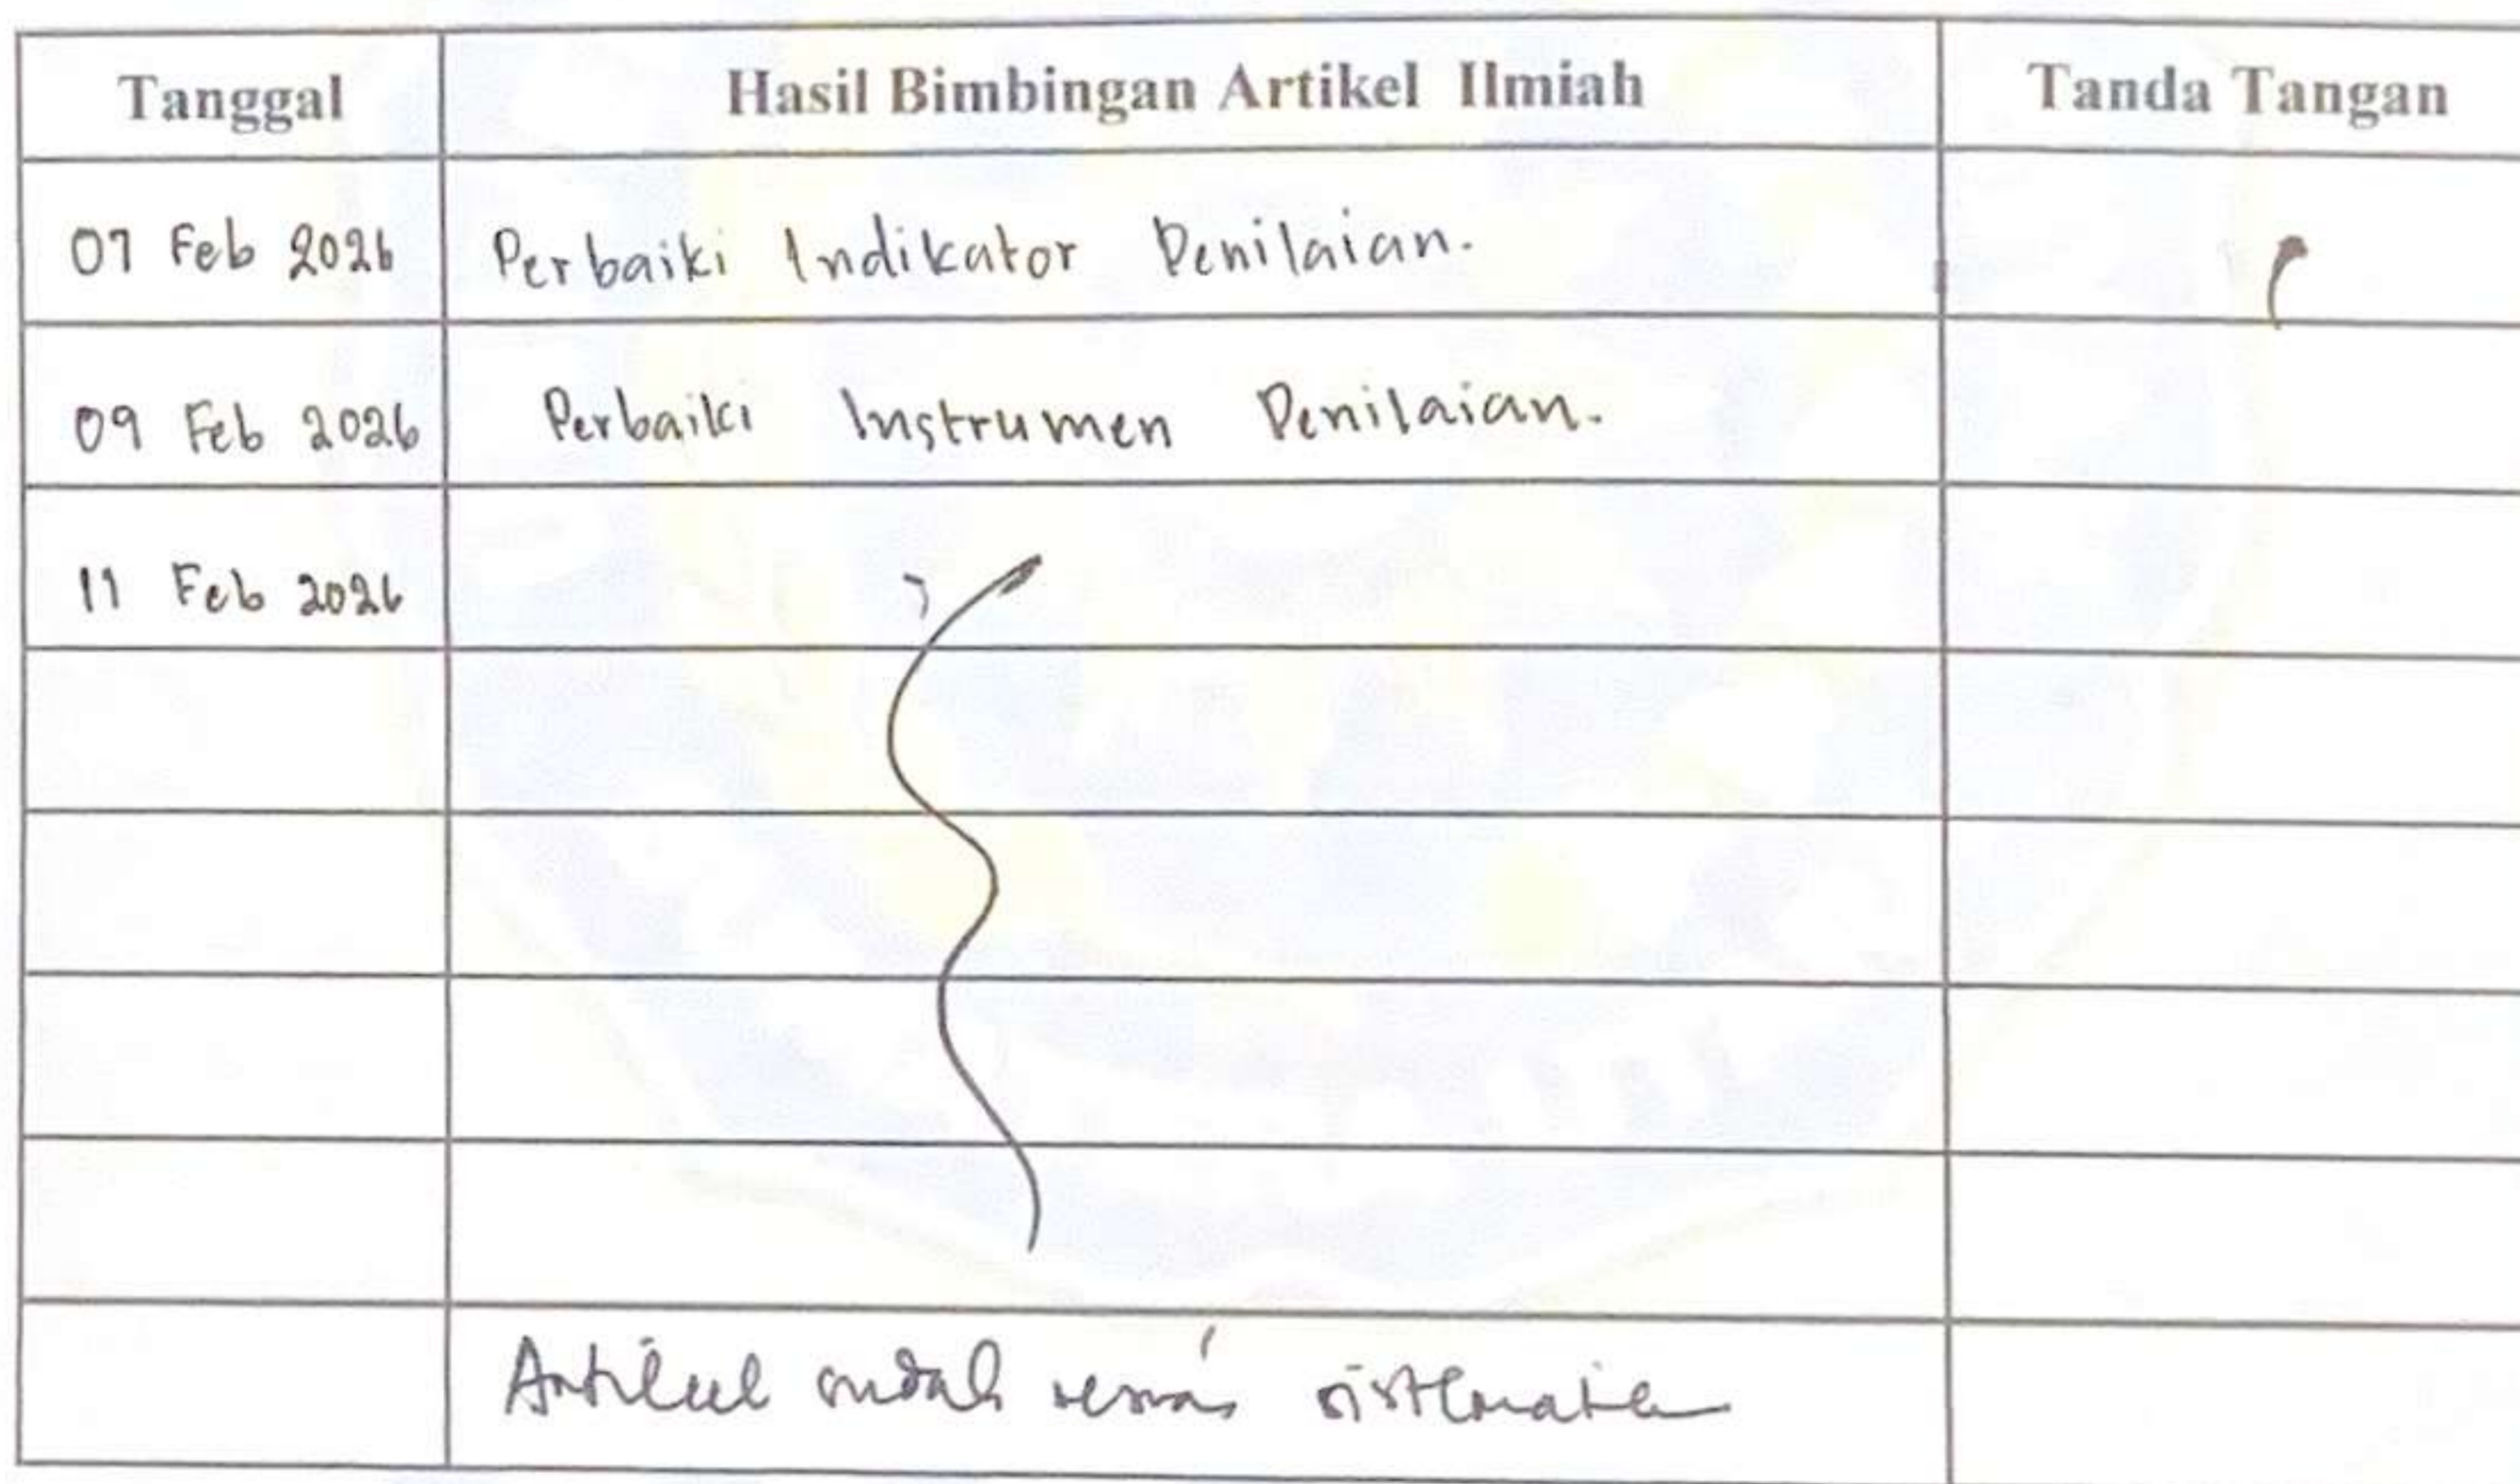 Tanggal Hasil Bimbingan Artikel Ilmiah Tanda Tangan
07 Feb 2026 Perbaiki Indikator Penilaian.
09 Feb 2026 Perbaiki Instrumen Penilaian.
11 Feb 2026
Artikel sudah sesuai sistematika